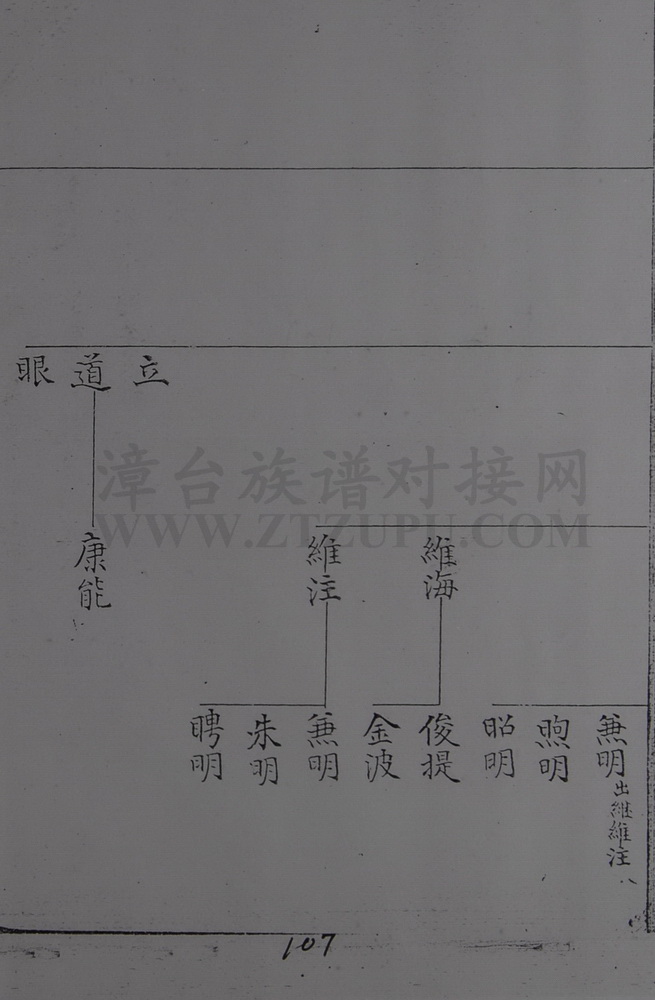 立
道
眼
維海
維注
康能
兼明出繼維注
煦明
昭明
俊提
金波
兼明
朱明
聘明
漳台族谱对接网
WWW.ZTZUPU.COM
107